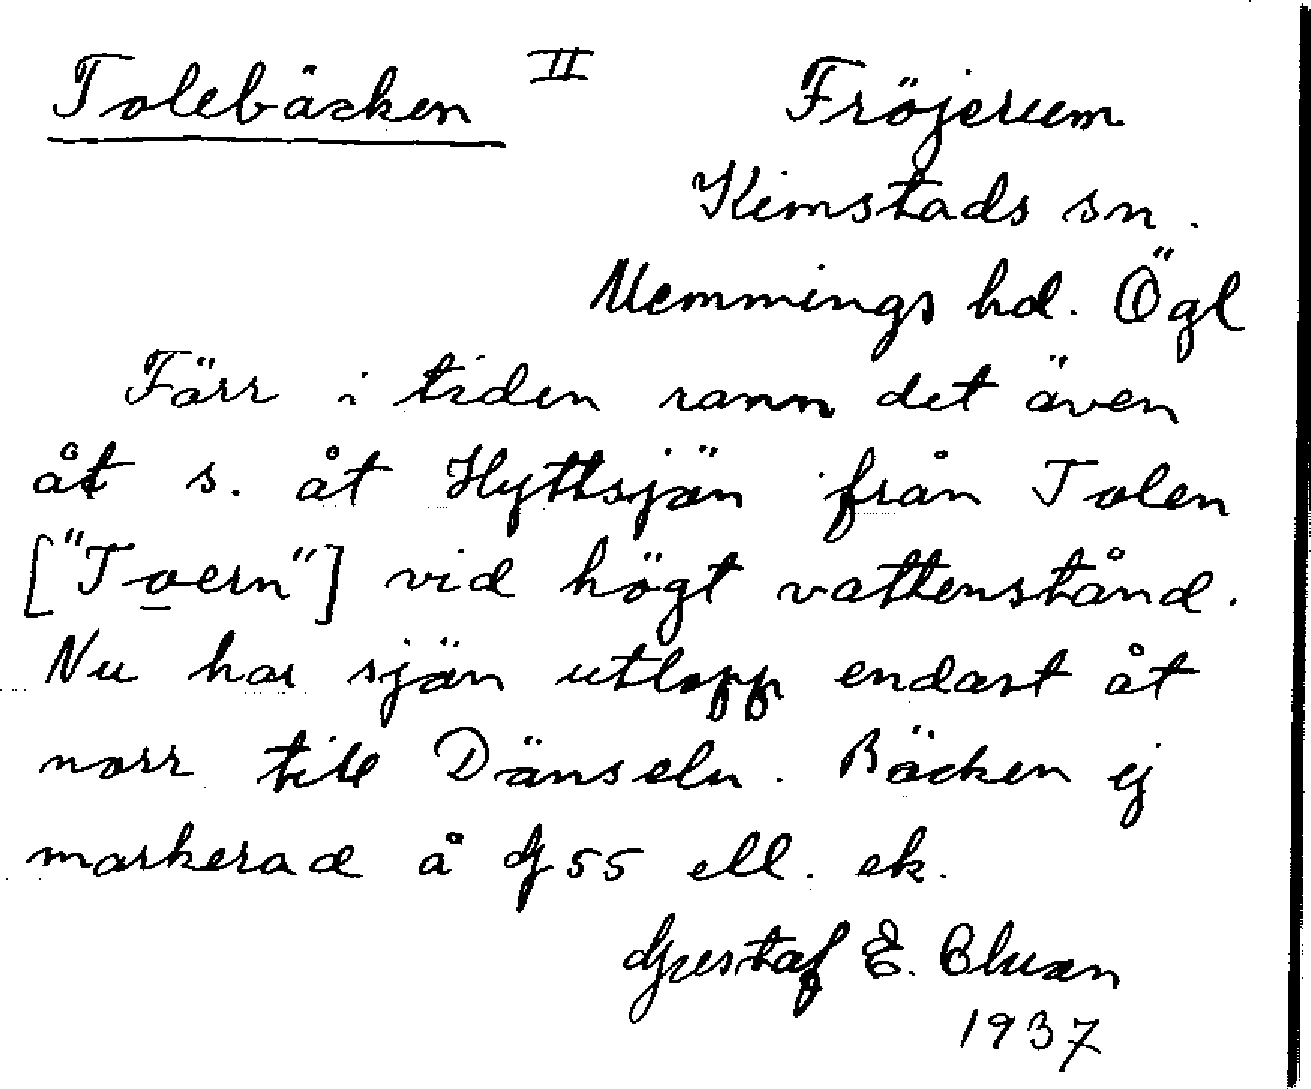 Tolebäcken II Fröjerum
Kimstads sn.
Memmings hd. Ögl
Förr i tiden rann det även
åt s. åt Hyttsjön från Tolen
["Toern"] vid högt vattenstånd.
Nu har sjön utlopp endast åt
norr till Dänseln. Bäcken ej
markerad å G55 ell. ek.
Gustaf E. Bluan
1937